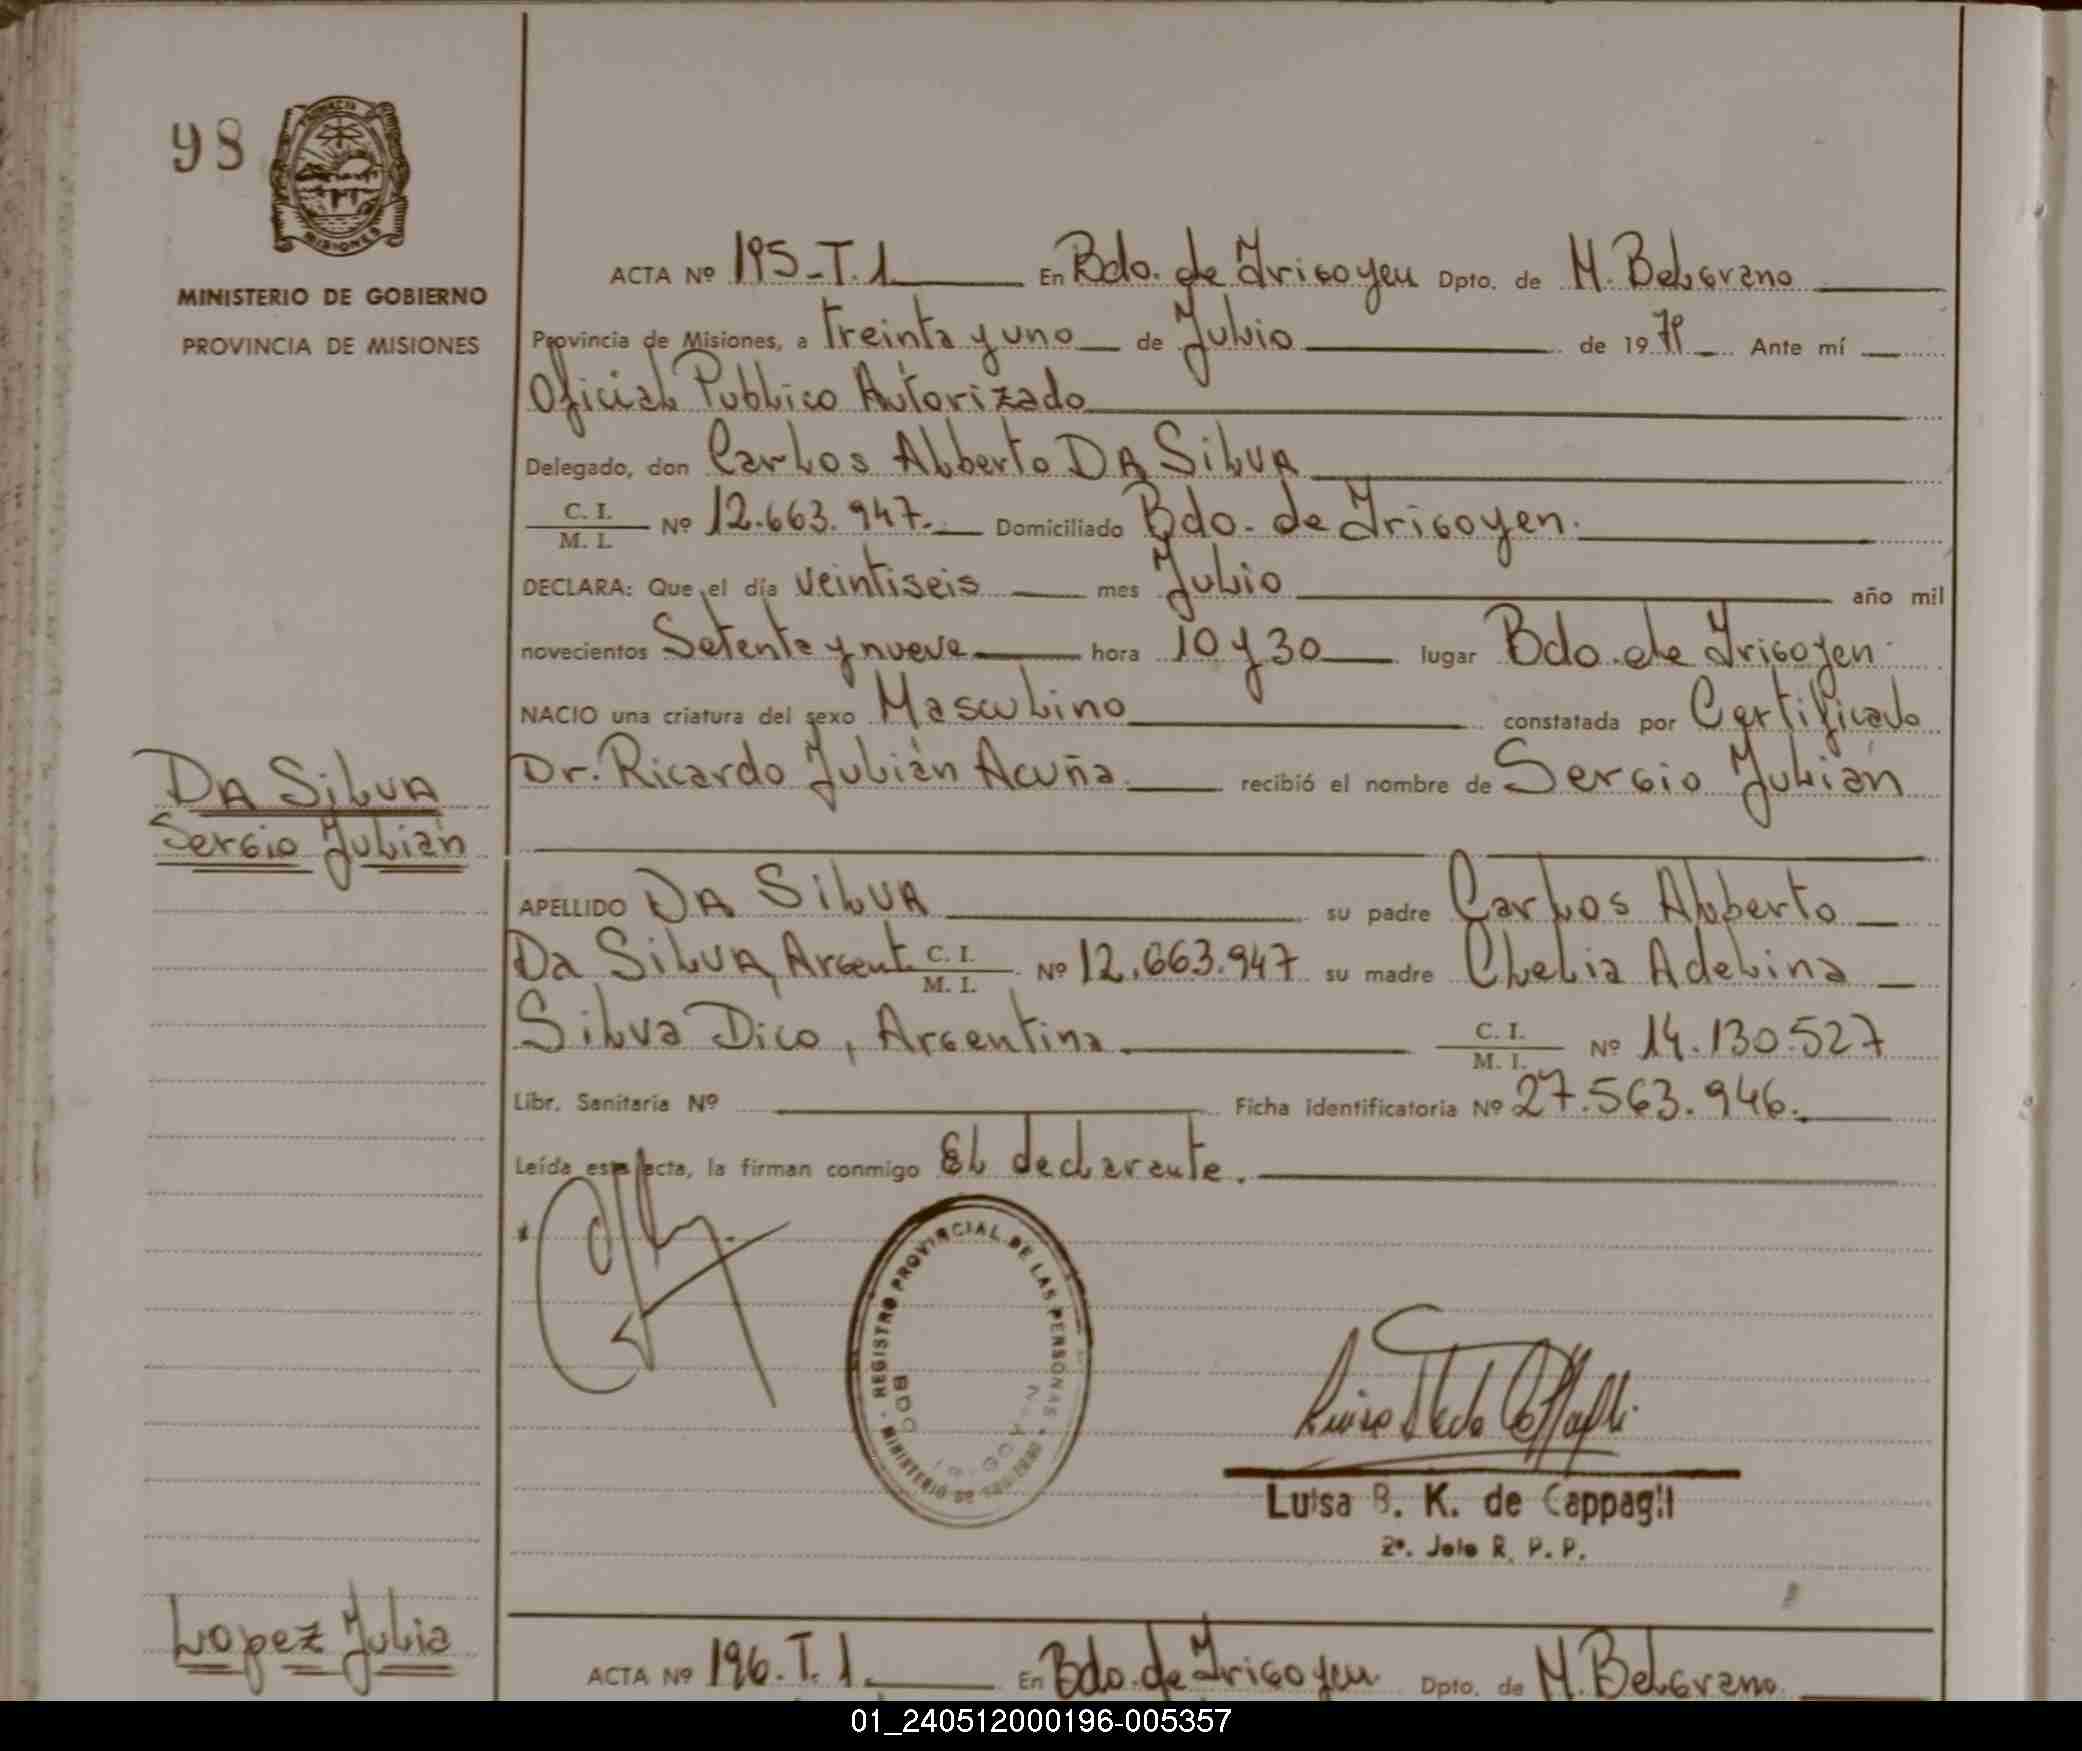 98
PROVINCIA
MISIONES
MINISTERIO DE GOBIERNO
PROVINCIA DE MISIONES
ACTA Nº 195-T.1 En Bdo. de Irigoyen Dpto. de M. Belgrano
Provincia de Misiones, a treinta y uno de Julio de 1979 Ante mí
Oficial Publico Autorizado
Delegado, don Carlos Alberto DA SILVA
C. I. / M. I. Nº 12.663.947.- Domiciliado Bdo. de Irigoyen.
DECLARA: Que el día veintiseis mes Julio año mil
novecientos Setenta y nueve hora 10 y 30 lugar Bdo. de Irigoyen.
NACIO una criatura del sexo Masculino constatada por Certificado
Dr. Ricardo Julián Acuña recibió el nombre de Sergio Julián
DA SILVA
Sergio Julián
APELLIDO DA SILVA su padre Carlos Alberto
Da SILVA, Argent. C. I. / M. I. Nº 12.663.947 su madre Clelia Adelina
Silva Dico, Argentina C. I. / M. I. Nº 14.130.527
Libr. Sanitaria Nº Ficha identificatoria Nº 27.563.946.
Leída esta acta, la firman conmigo El declarante.
REGISTRO PROVINCIAL DE LAS PERSONAS
MINISTERIO DE GOBIERNO
BDO
Luisa B. K. de Cappagli
2º. Jefe R. P. P.
Lopez Julia
ACTA Nº 196.T.1 En Bdo. de Irigoyen Dpto. de M. Belgrano
01_240512000196-005357